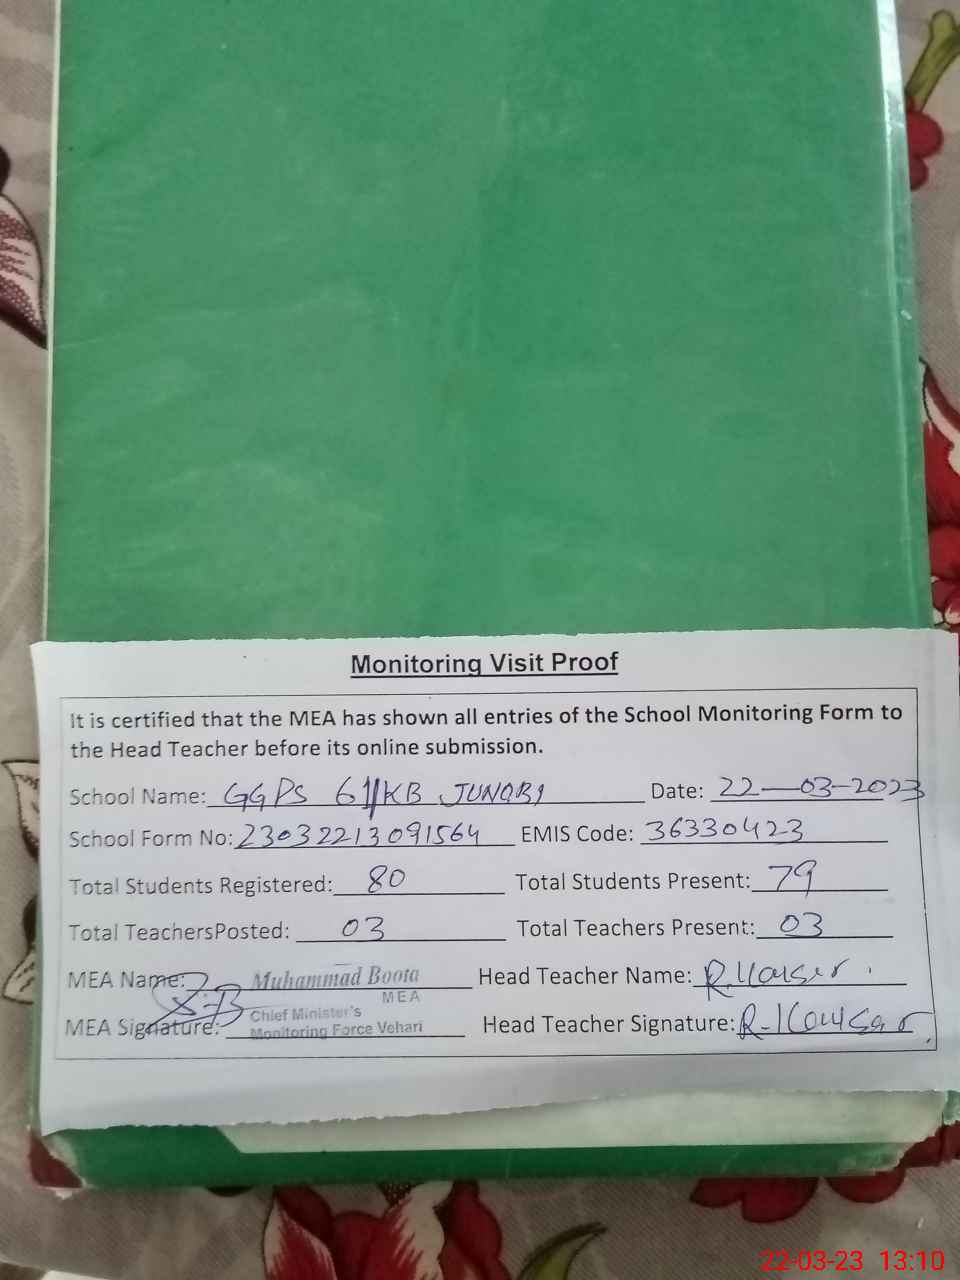 Monitoring Visit Proof
It is certified that the MEA has shown all entries of the School Monitoring Form to
the Head Teacher before its online submission.
School Name: GGPS 61/KB JUNOBI Date: 22-03-2023
School Form No: 23032213091564 EMIS Code: 36330423
Total Students Registered: 80 Total Students Present: 79
Total TeachersPosted: 03 Total Teachers Present: 03
MEA Name: Muhammad Boota Head Teacher Name: R.Kousar
MEA
MEA Signature: Chief Minister's Head Teacher Signature: R-Kousar
Monitoring Force Vehari
22-03-23 13:10